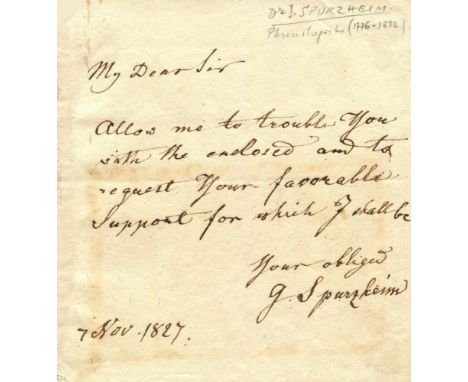 Dr J. SPURZHEIM.
Phrenologiste (1776-1832)
My Dear Sir
Allow me to trouble You
with the enclosed and to
request Your favorable
Support for which I shall be
Your obliged
G. Spurzheim
7 Nov. 1827.